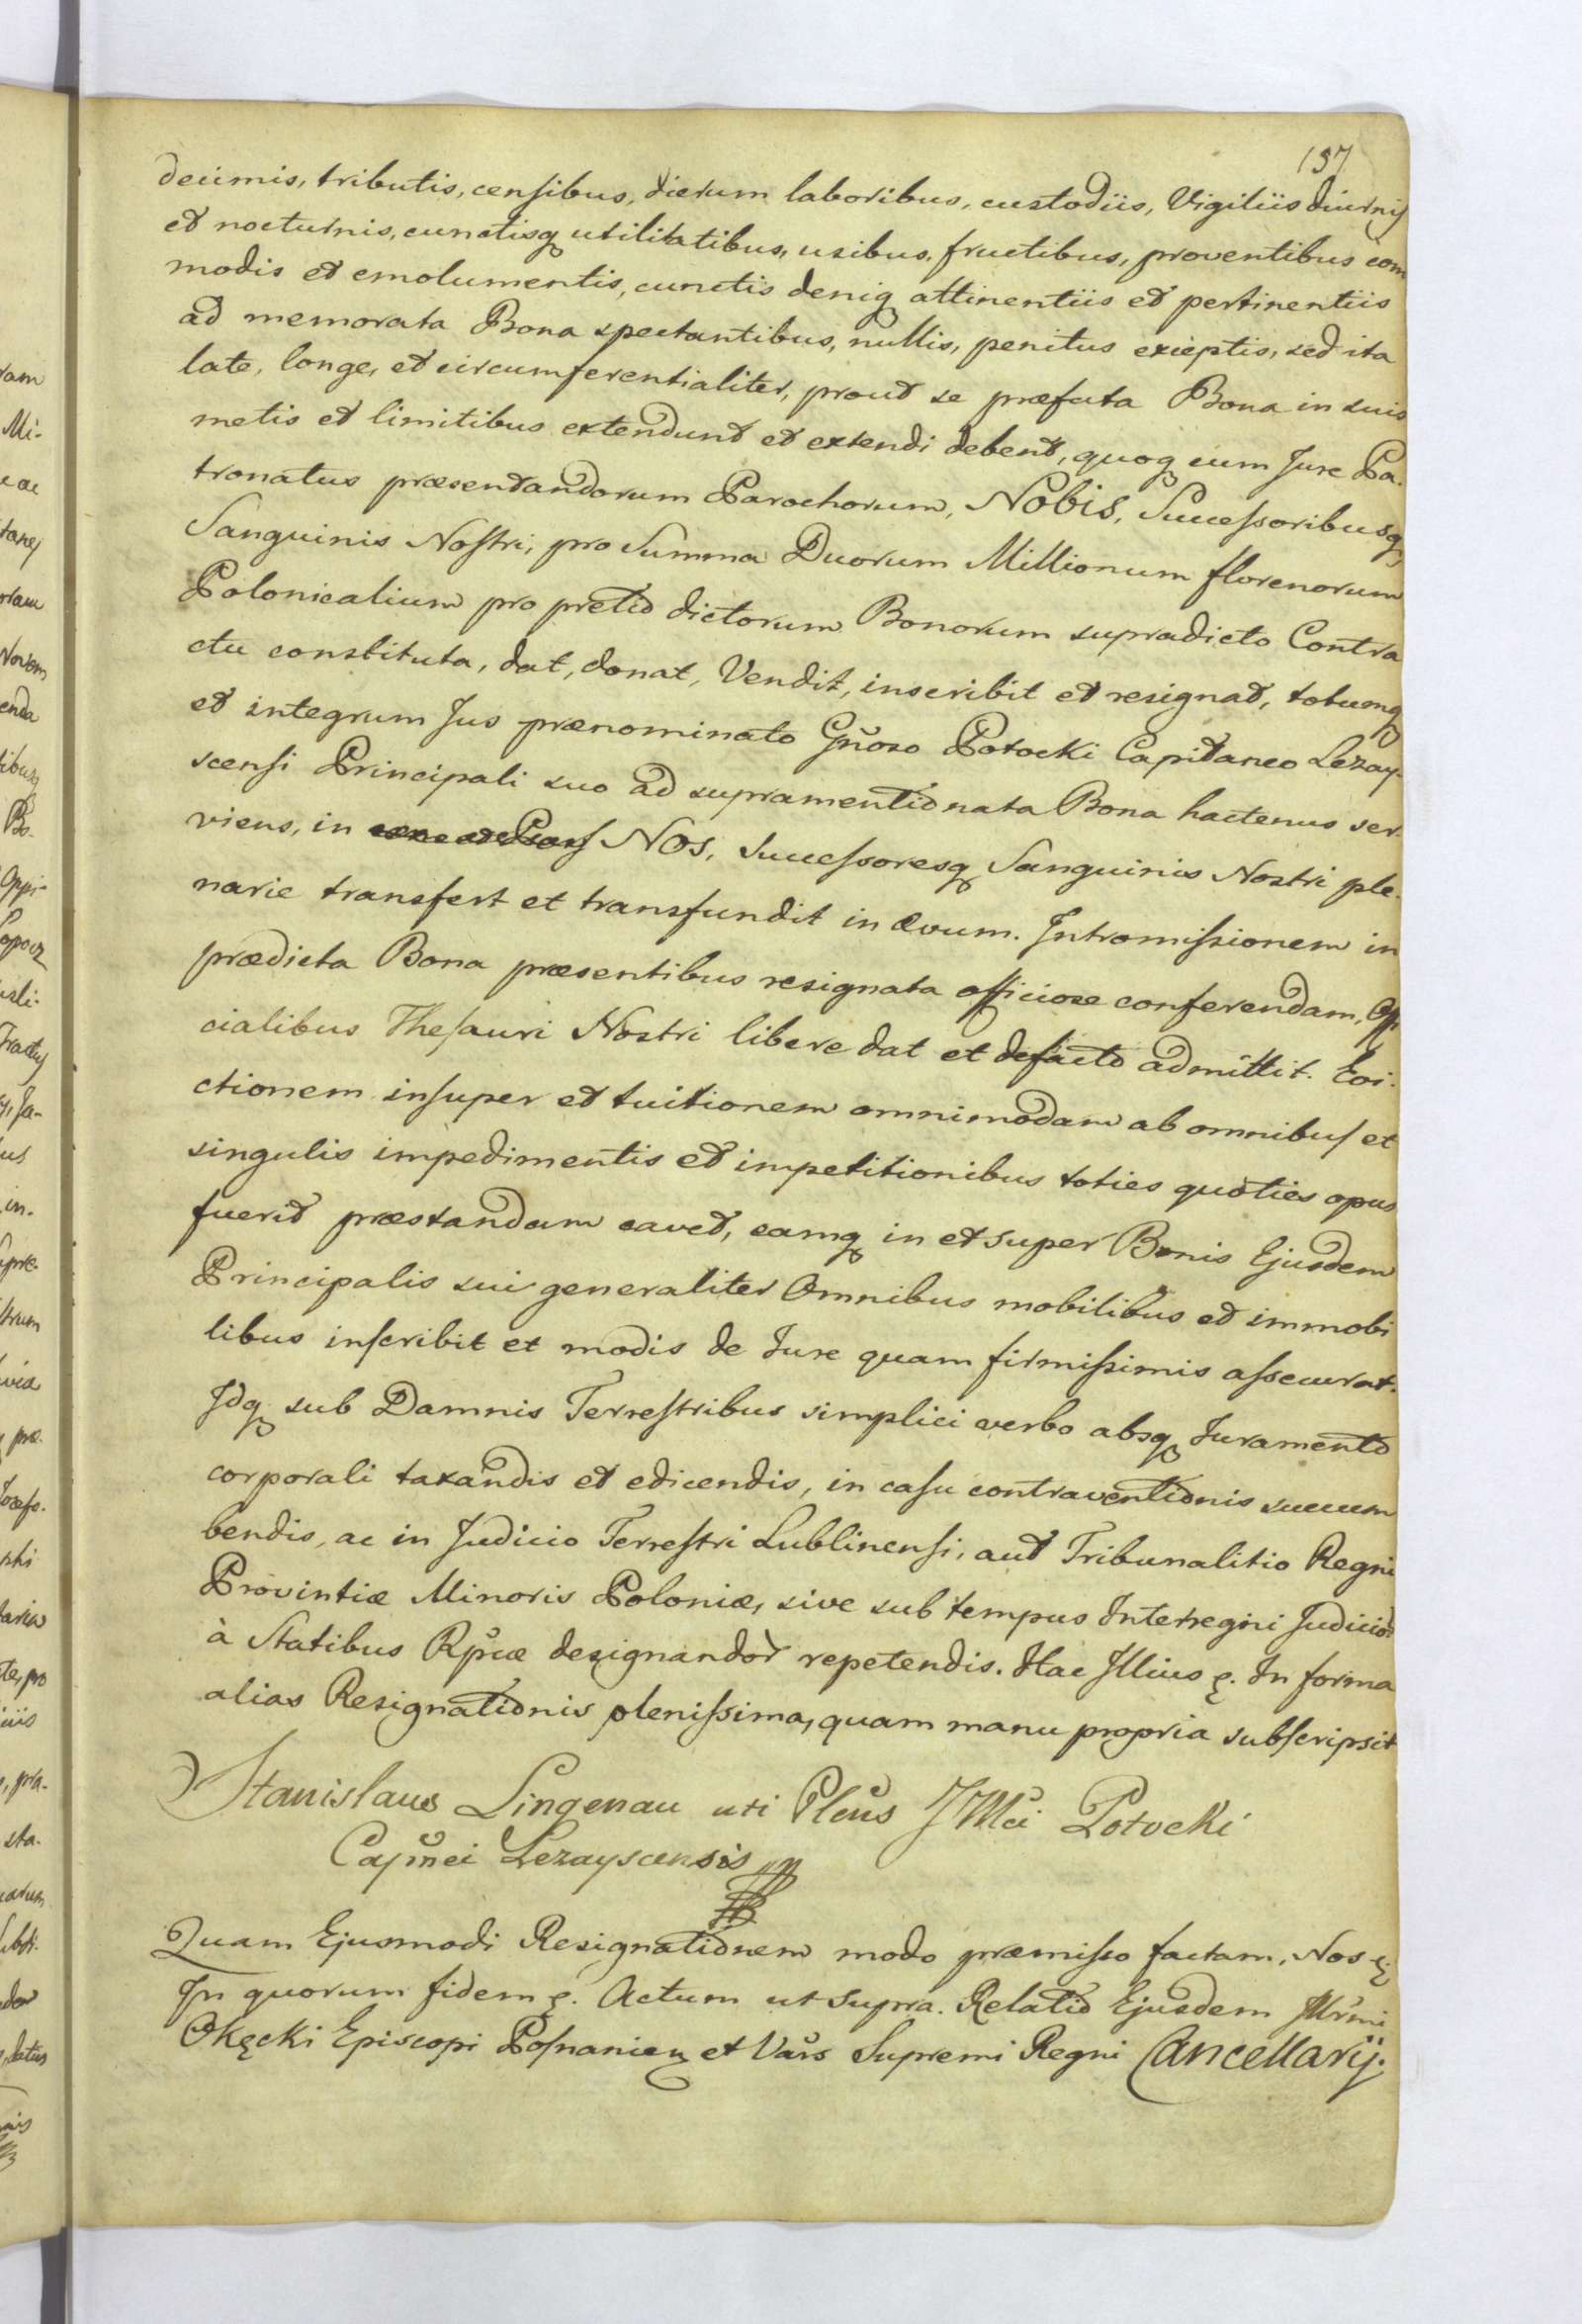 137
decimis, tributis, censibus, dierum laboribus, custodiis, Vigiliis diurnis
et nocturnis, cunctisq utilitatibus, usibus, fructibus, proventibus com
modis et emolumentis, cunctis deniq attinentiis et pertinentiis
ad memorata Bona spectantibus, nullis, penitus exceptis, sed ita
late, longe, et circumferentialiter, prout se præfata Bona in suis
metis et limitibus extendunt et extendi debent, quoq cum Jure Pa-
tronatus præsentandorum Parochorum, NOBIS, Successoribusq
Sanguinis Nostri, pro Summa Duorum Millionum florenorum
Polonicalium pro pretio dictorum Bonorum supradicto Contra
ctu constituta, dat, donat, Vendit, inscribit et resignat, totumq
et integrum Jus prænominato Gnoso Potocki Capitaneo Lezay-
scensi Principali suo ad supramentionata Bona hactenus ser-
viens, in NOS, Successoresq Sanguinis Nostri ple-
narie transfert et transfundit in ævum. Intromissionem in
prædicta Bona præsentibus resignata officiose conferendam, Offi
cialibus Thesauri Nostri libere dat et defacto admittit. Evi-
ctionem insuper et tuitionem omnimodam ab omnibus et
singulis impedimentis et impetitionibus toties quoties opus
fuerit præstandam cavet, eamq in et super Bonis Ejusdem
Principalis sui generaliter Omnibus mobilibus et immobi
libus inscribit et modis de Jure quam firmissimis assecurat.
Idq sub Damnis Terrestribus simplici verbo absq Juramento
corporali taxandis et edicendis, in casu contraventionis succum
bendis, ac in Judicio Terrestri Lublinensi, aut Tribunalitio Regni
Provintiæ Minoris Poloniæ, sive sub tempus Interregni Judicior
à Statibus Rpcæ designandor repetendis. Hac Illius &. In forma
alias Resignationis plenissima, quam manu propria subscripsit
Stanislaus Lingenau uti Plenus JMci Potocki
Capnei Lezayscensis mp
Quam Ejusmodi Resignationem modo præmisso factam, Nos &
In quorum fidem &. Actum ut supra. Relatio Ejusdem Illrmi
Okęcki Episcopi Posnanien et Vars Supremi Regni Cancellarij.